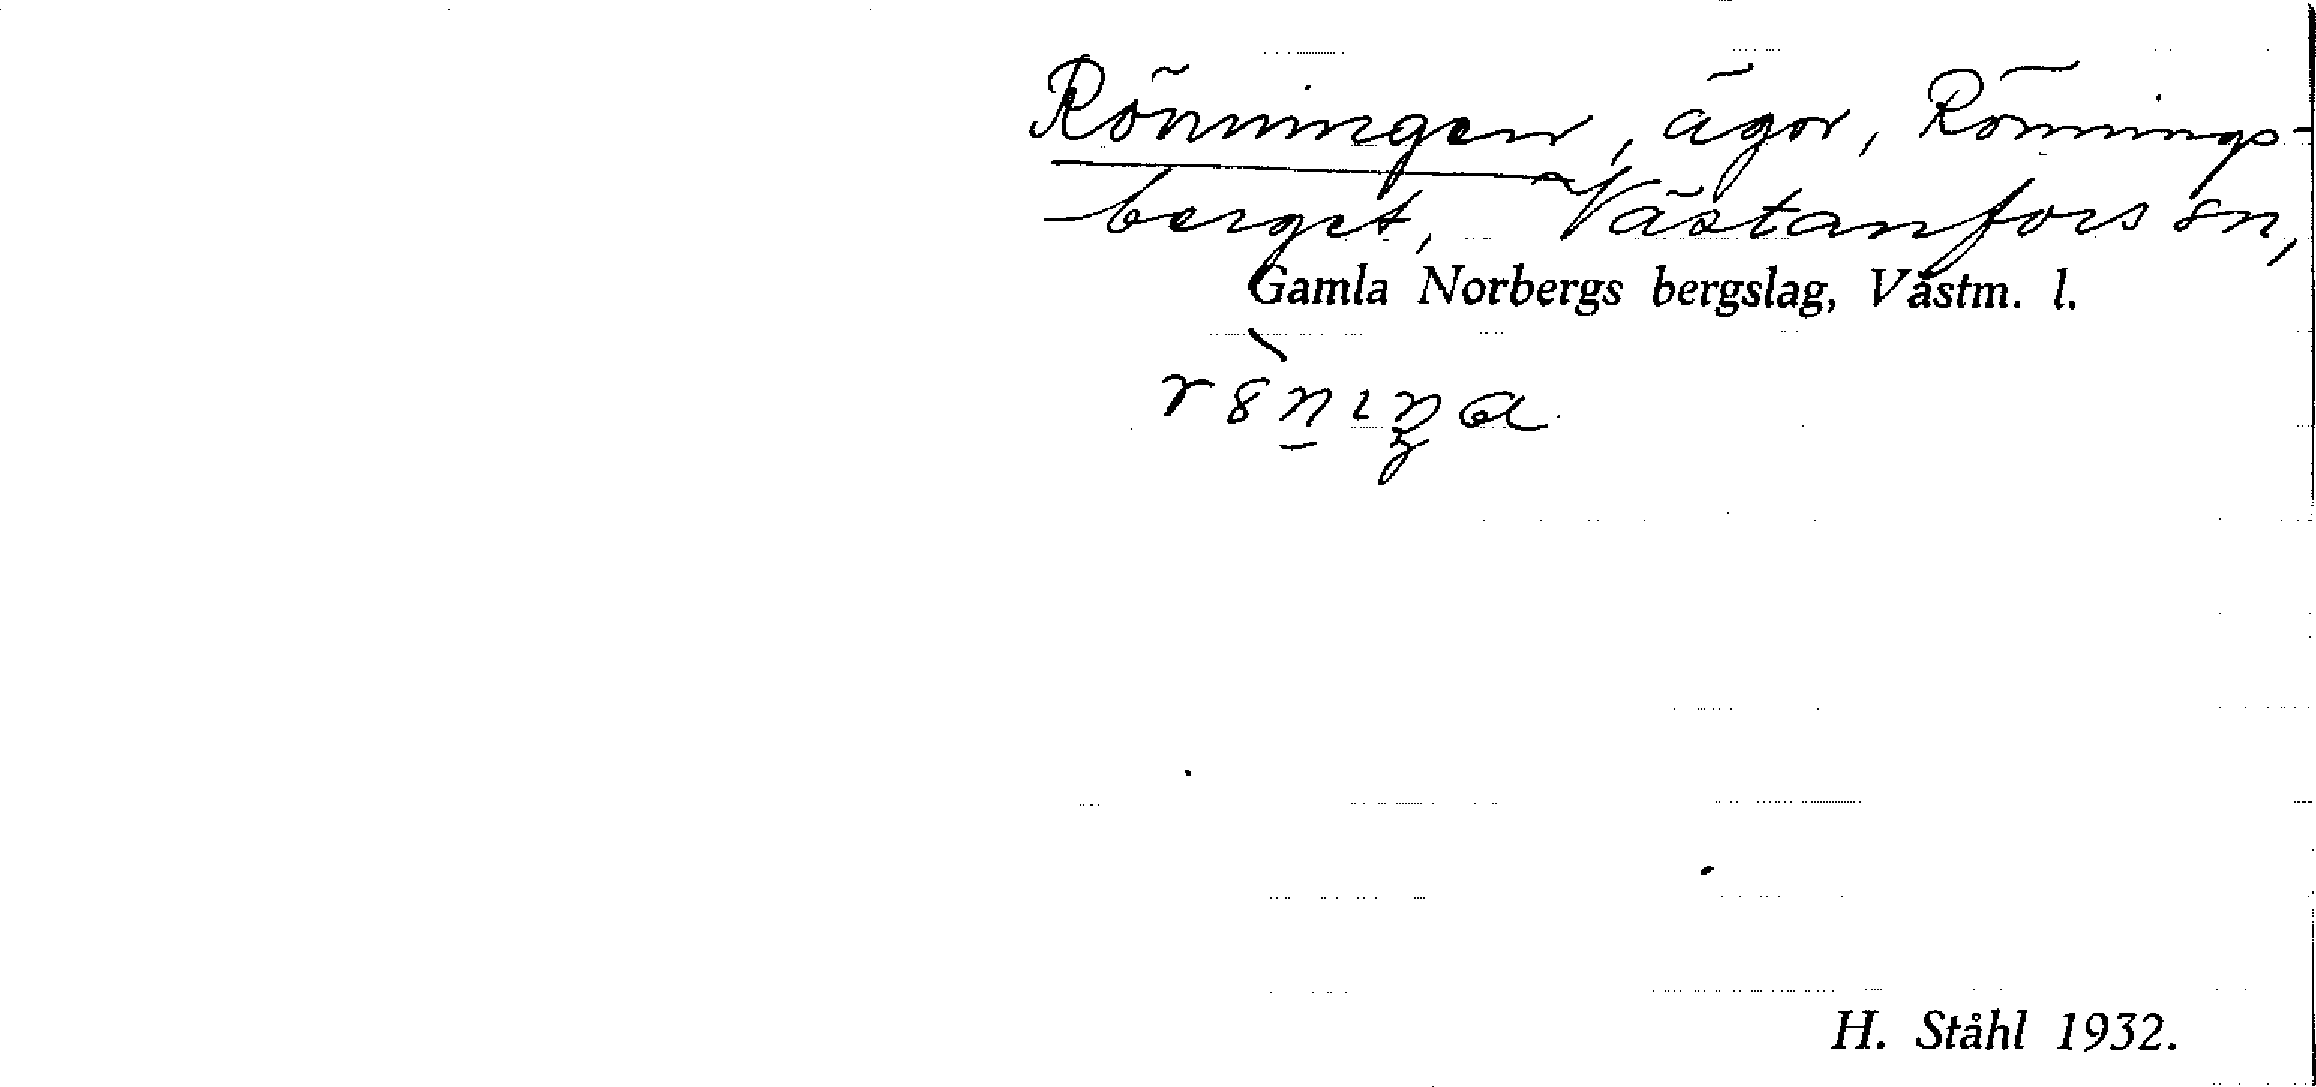 Rönningen, ägor, Rönnings-
berget, Västanfors sn,
Gamla Norbergs bergslag, Västm. l.
H. Ståhl 1932.